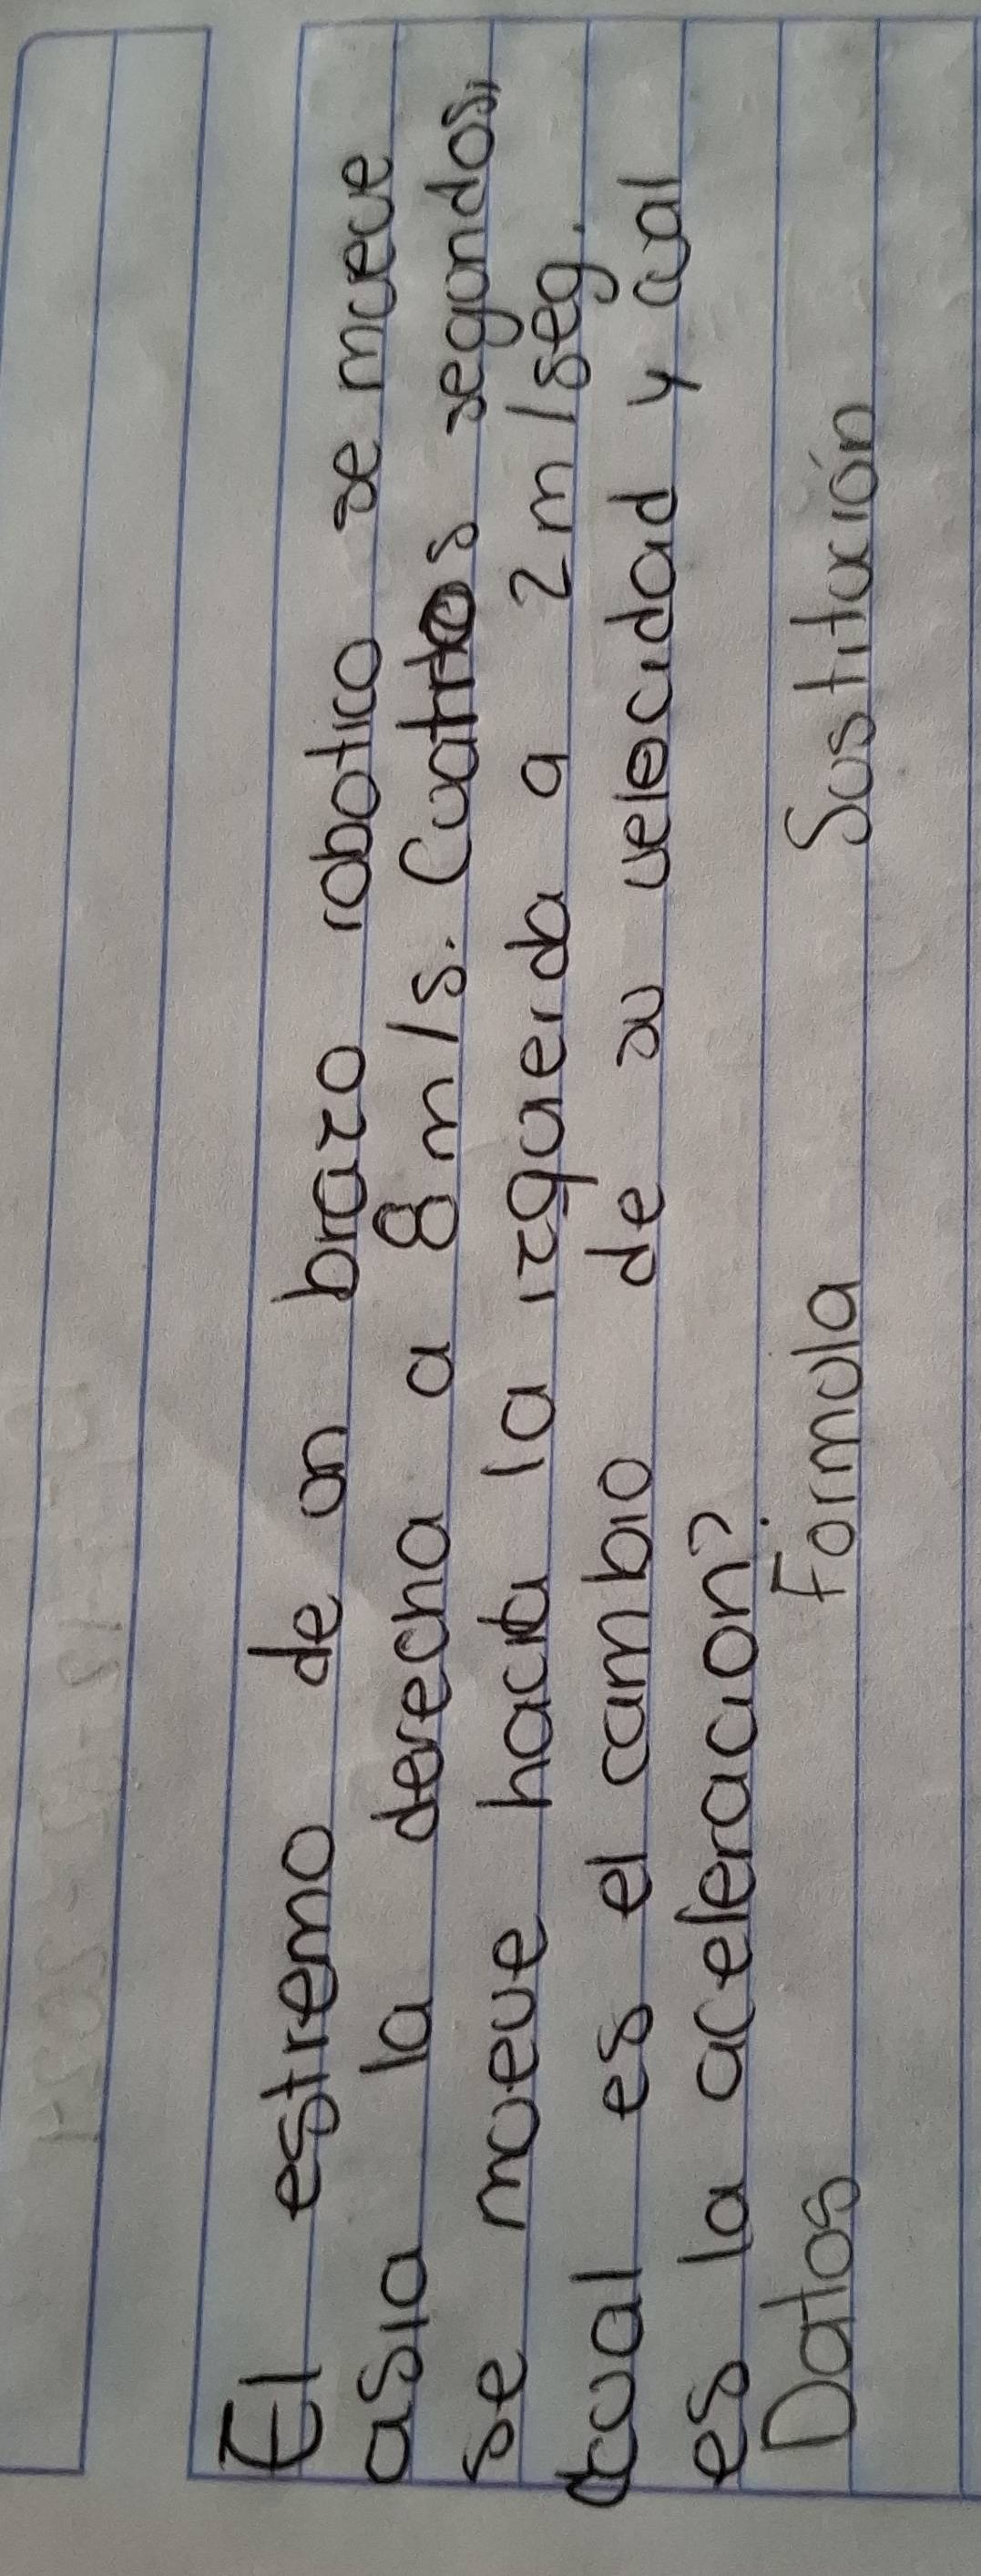 El estremo de un brazo robotico se mueve
asia la derecha a 8 m/s. Cuatros segundos,
se mueve hacia la izquierda a 2 m/seg.
cual es el cambio de su velocidad y cual
es la aceleracion?
Datos Formula Sustitución